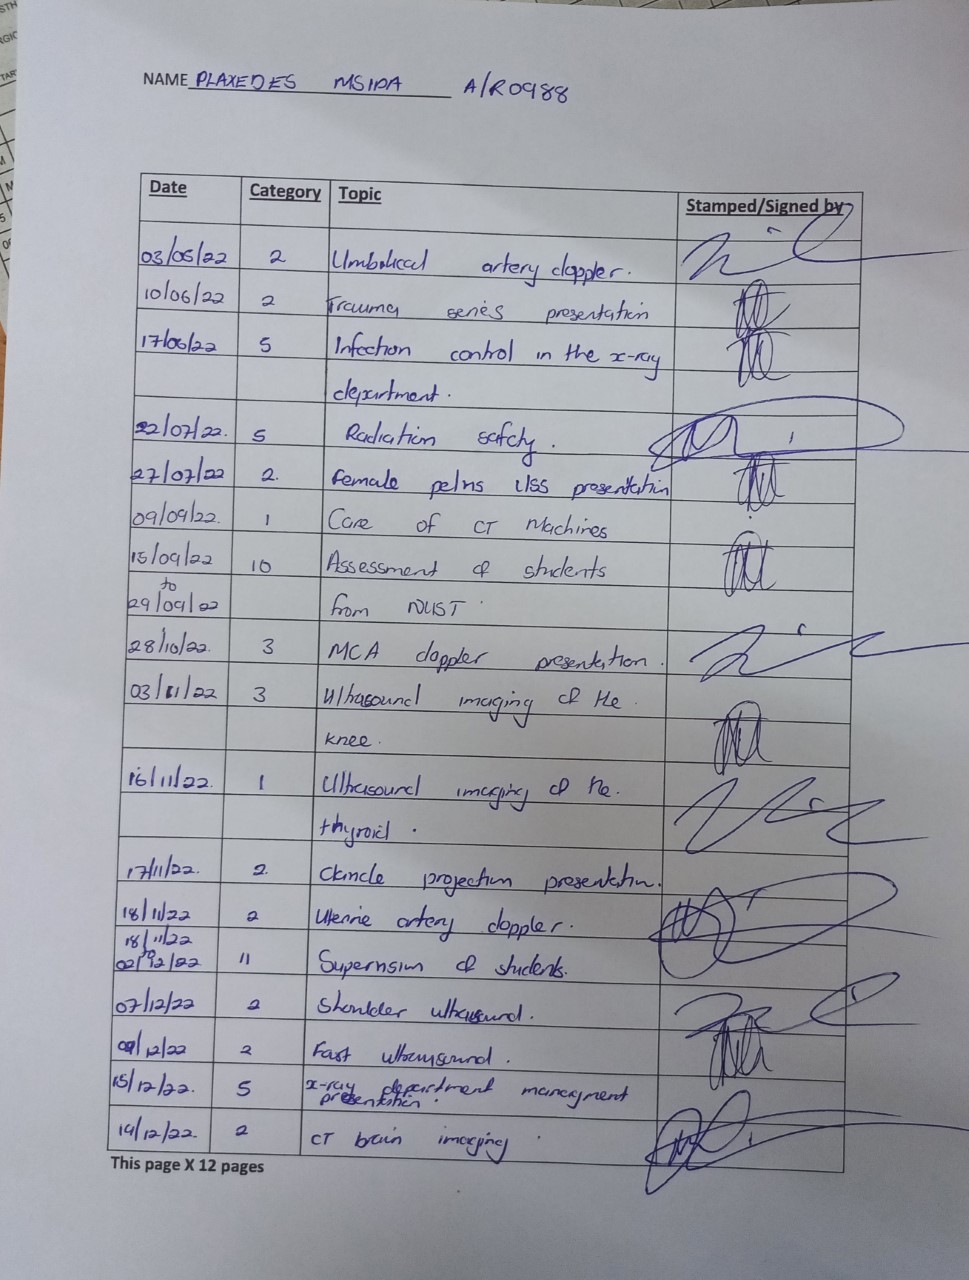 NAME PLAXEDES MSIPA A/R0988
Date Category Topic Stamped/Signed by
03/06/22 2 Umbilical artery doppler.
10/06/22 2 Trauma series presentation
17/06/22 5 Infection control in the x-ray
department.
22/07/22. 5 Radiation safety.
27/07/22 2. Female pelvis USS presentation
09/09/22. 1 Care of CT Machines
15/09/22 10 Assessment of students
to
29/09/22 from NUST.
28/10/22. 3 MCA doppler presentation.
03/11/22 3 Ultrasound imaging of the.
knee.
16/11/22. 1 Ultrasound imaging of the.
thyroid.
17/11/22. 2. projection presentation.
18/11/22 2 Uterine artery doppler.
18/11/22
to
02/12/22 11 Supervision of students.
07/12/22 2 Shoulder ultrasound.
/12/22 2 Fast ultrasound.
15/12/22. 5 x-ray department managment
presentation.
19/12/22. 2 CT brain imaging
This page X 12 pages